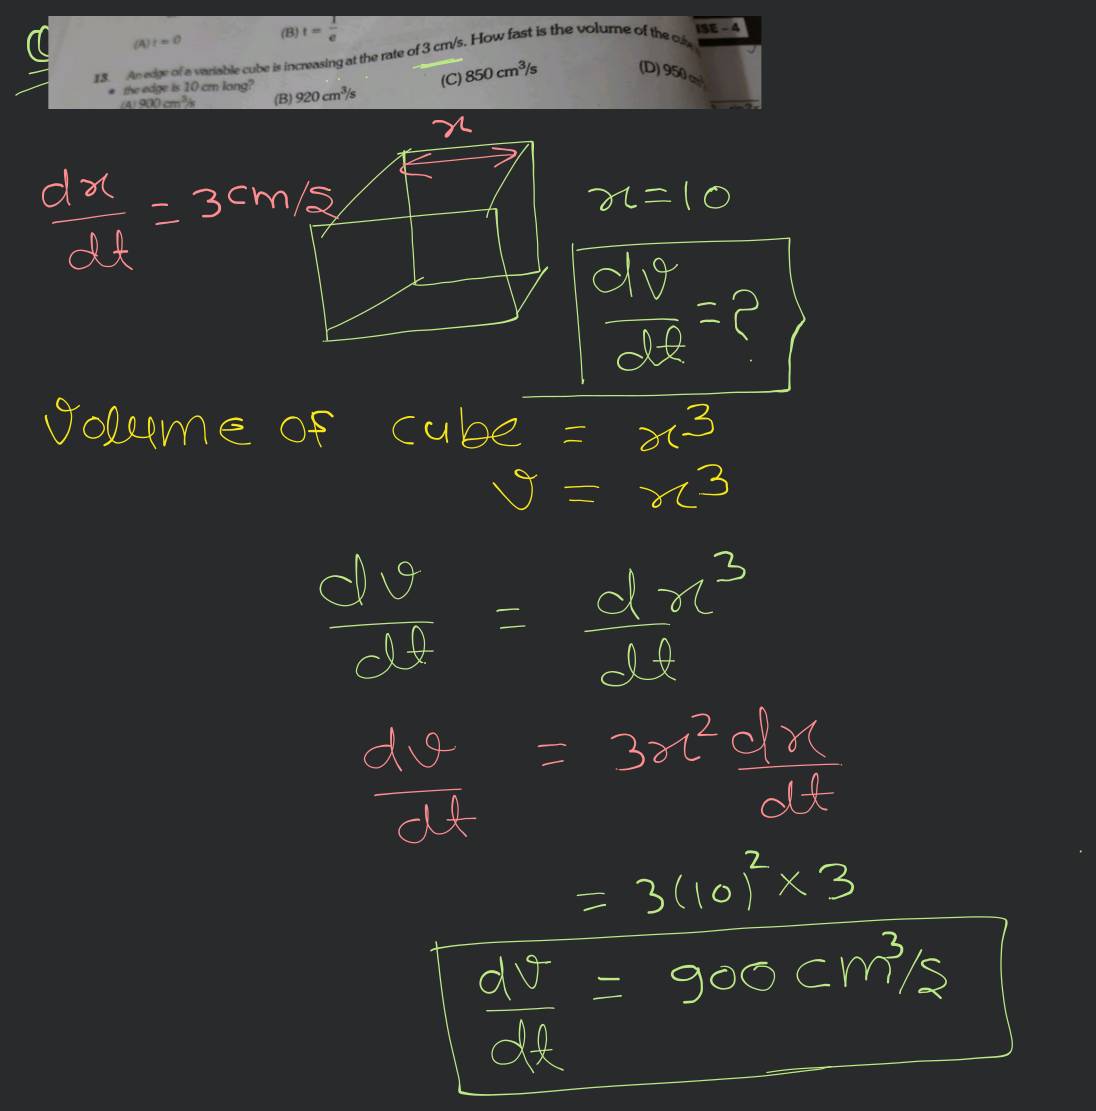 (A) t = 0
(B) t = 1/e
ISE - 4
13. An edge of a variable cube is increasing at the rate of 3 cm/s. How fast is the volume of the cube
the edge is 10 cm long?
(A) 900 cm³/s
(B) 920 cm³/s
(C) 850 cm³/s
(D) 950 cm
x
dx/dt = 3cm/s
x = 10
dv/dt = ?
Volume of cube = x³
v = x³
dv/dt = dx³/dt
dv/dt = 3x² dx/dt
= 3(10)² × 3
dv/dt = 900 cm³/s